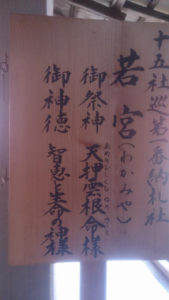 十五社巡第一番納札社
若宮(わかみや)
御祭神 天押雲根命様
御神徳 智恵と寿命の神様